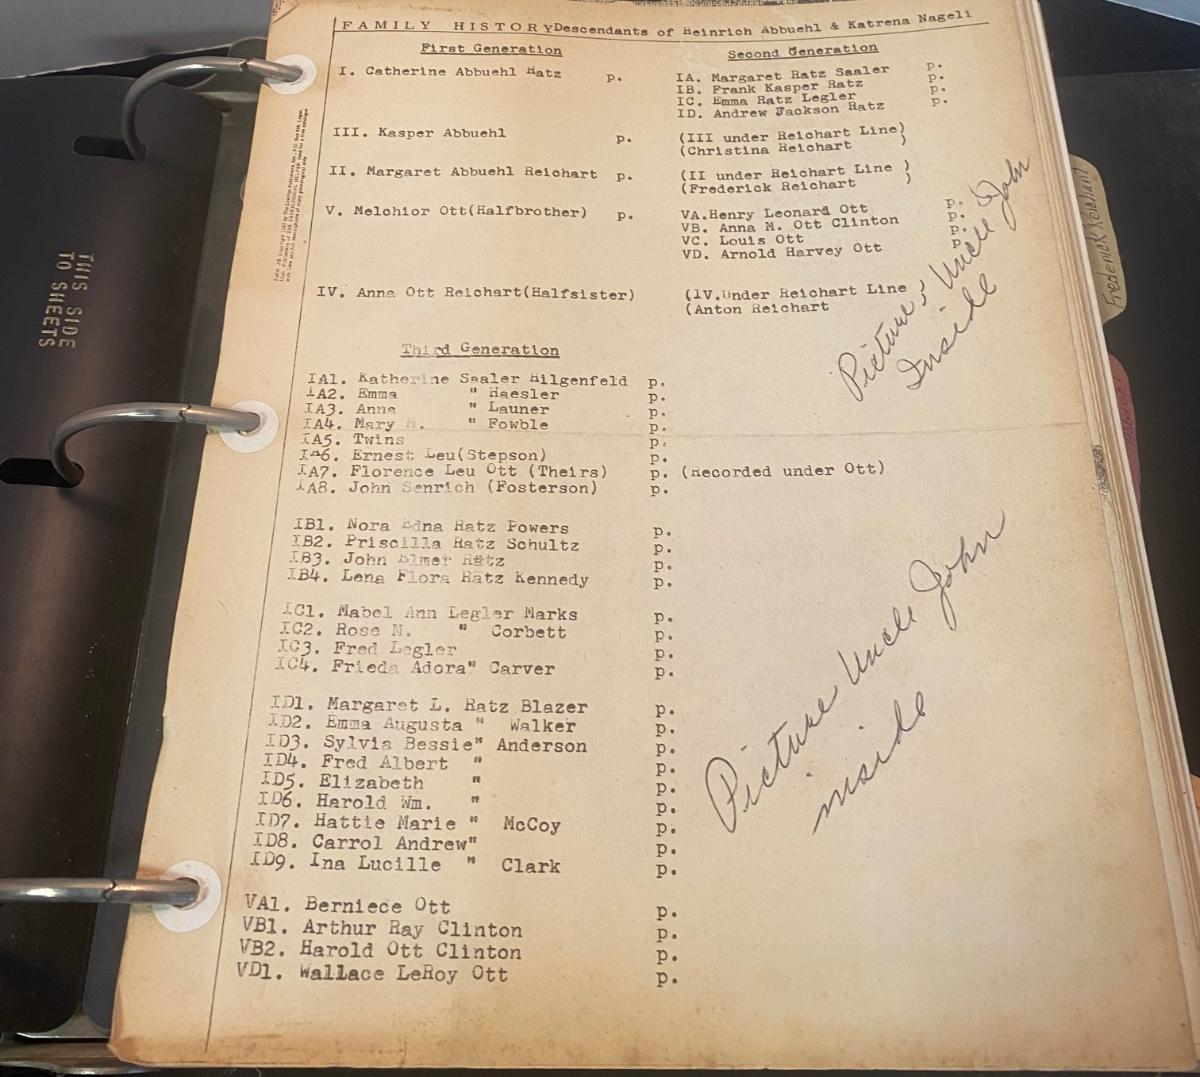 FAMILY HISTORY Descendants of Heinrich Abbuehl & Katrena Nageli
First Generation Second Generation
I. Catherine Abbuehl Ratz p. IA. Margaret Ratz Saaler p.
IB. Frank Kasper Ratz p.
IC. Emma Ratz Legler p.
ID. Andrew Jackson Ratz p.
III. Kasper Abbuehl p. (III under Reichart Line)
(Christina Reichart )
II. Margaret Abbuehl Reichart p. (II under Reichart Line )
(Frederick Reichart )
V. Melchior Ott(Halfbrother) p. VA.Henry Leonard Ott p.
VB. Anna M. Ott Clinton p.
VC. Louis Ott p.
VD. Arnold Harvey Ott p.
IV. Anna Ott Reichart(Halfsister) (IV.Under Reichart Line )
(Anton Reichart
Picture, Uncle John
Inside
Third Generation
IA1. Katherine Saaler Hilgenfeld p.
IA2. Emma " Haesler p.
IA3. Anna " Launer p.
IA4. Mary M. " Fowble p.
IA5. Twins p.
IA6. Ernest Leu(Stepson) p.
IA7. Florence Leu Ott (Theirs) p. (Recorded under Ott)
IA8. John Senrich (Fosterson) p.
IB1. Nora Edna Ratz Powers p.
IB2. Priscilla Ratz Schultz p.
IB3. John Elmer Ratz p.
IB4. Lena Flora Ratz Kennedy p.
IC1. Mabel Ann Legler Marks p.
IC2. Rose M. " Corbett p.
IC3. Fred Legler p.
IC4. Frieda Adora" Carver p.
ID1. Margaret L. Ratz Blazer p.
ID2. Emma Augusta " Walker p.
ID3. Sylvia Bessie" Anderson p.
ID4. Fred Albert " p.
ID5. Elizabeth " p.
ID6. Harold Wm. " p.
ID7. Hattie Marie " McCoy p.
ID8. Carrol Andrew" p.
ID9. Ina Lucille " Clark p.
Picture Uncle John
inside
VA1. Berniece Ott p.
VB1. Arthur Ray Clinton p.
VB2. Harold Ott Clinton p.
VD1. Wallace LeRoy Ott p.
THIS SIDE
TO SHEETS
Frederick Reichart